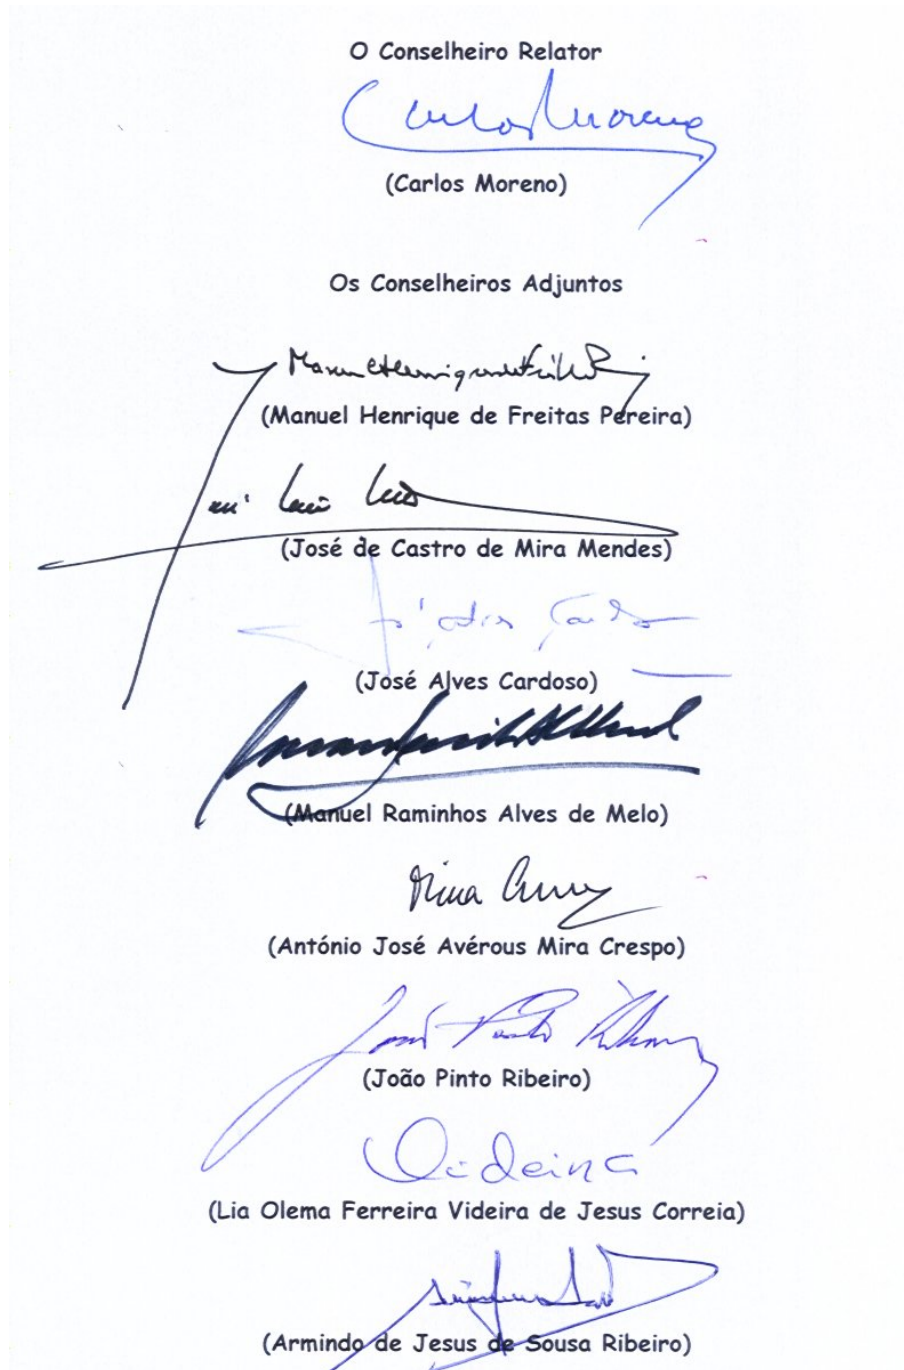 O Conselheiro Relator
Carlos Moreno
(Carlos Moreno)
Os Conselheiros Adjuntos
(Manuel Henrique de Freitas Pereira)
(José de Castro de Mira Mendes)
(José Alves Cardoso)
(Manuel Raminhos Alves de Melo)
Mira Crespo
(António José Avérous Mira Crespo)
João Pinto Ribeiro
(João Pinto Ribeiro)
Videira
(Lia Olema Ferreira Videira de Jesus Correia)
(Armindo de Jesus de Sousa Ribeiro)